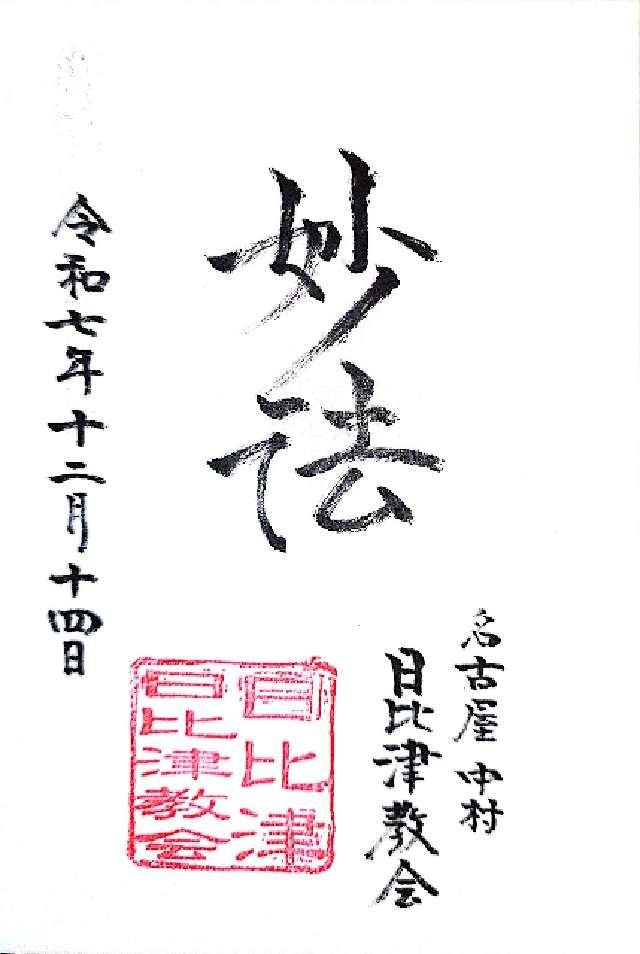 妙法
名古屋 中村
日比津教会
令和七年十二月十四日
日比津
日比津教会